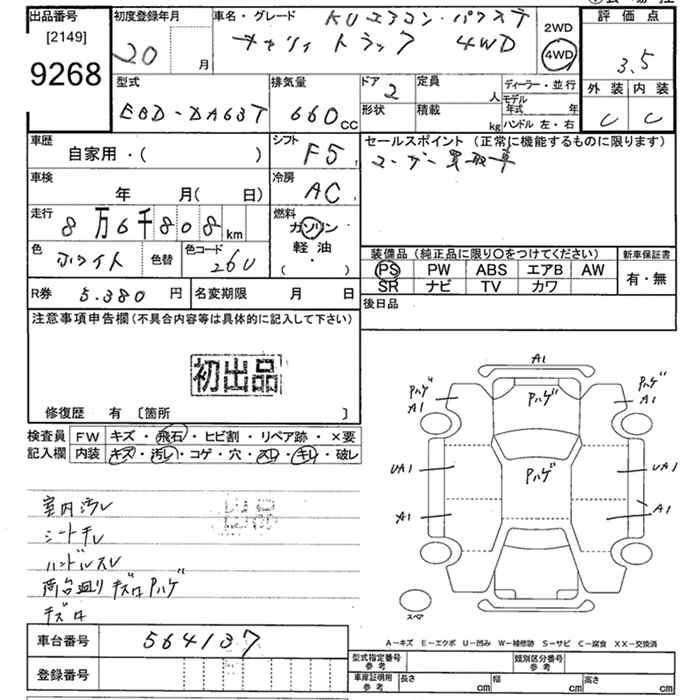 出品番号
[2149]
9268
初度登録年月
20
月
車名・グレード
KUエアコン・パワステ
キャリイ トラック 4WD
2WD
4WD
評価点
3.5
外装 内装
C C
型式
EBD-DA63T
排気量
660cc
ドア
2
定員
人
形状
積載
kg
ディーラー・並行
モデル年式 年
ハンドル 左・右
車歴
自家用・( )
シフト
F5
セールスポイント (正常に機能するものに限ります)
ユーザー買取車
車検
年 月( 日)
冷房
AC
走行
8万6千808km
燃料
ガソリン
軽油
( )
色
ホワイト
色替
色コード
26U
装備品(純正品に限り○をつけてください)
新車保証書
PS PW ABS エアB AW
SR ナビ TV カワ
有・無
R券 5.380 円
名変期限 月 日
後日品
注意事項申告欄(不具合内容等は具体的に記入して下さい)
初出品
修復歴 有 〔箇所 〕
検査員
記入欄
FW キズ・飛石・ヒビ割・リペア跡・×要
内装 キズ・汚レ・コゲ・穴・スレ・キレ・破レ
室内汚レ
シートキレ
ハンドルスレ
荷台廻り キズ ハゲ
A1
ハゲ
A1
ハゲ
ハゲ
A1
ハゲ
UA1
UA1
A1
A1
スペア
A-キズ E-エクボ U-凹み W-補修跡 S-サビ C-腐食 XX-交換済
車台番号
564137
登録番号
型式指定番号
参考
類別区分番号
参考
車庫証明用
参考
長さ cm
幅 cm
高さ cm